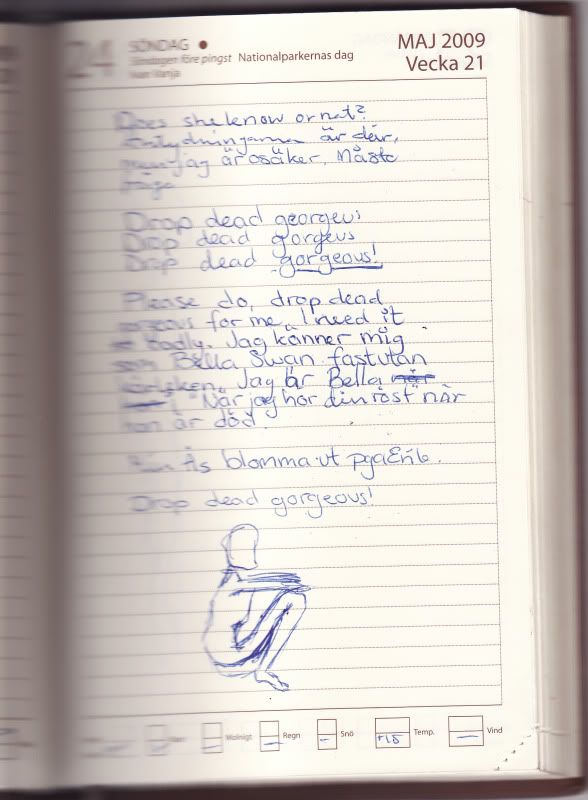 24 SÖNDAG MAJ 2009
Söndagen före pingst Nationalparkernas dag Vecka 21
Ivan Vanja
Does she know or not?
är där,
jag är osäker. Måste
fråga
Drop dead georgeus
Drop dead gorgeus
Drop dead gorgeous!
Please do, drop dead
gorgeous for me, I need it
Badly. Jag känner mig
som Bella Swan fast utan
kärleken. Jag är Bella när
"När jag hör din röst när
han är död.
Ås blomma ut pga
Drop dead gorgeous!
Molnigt Regn Snö +15 Temp. Vind